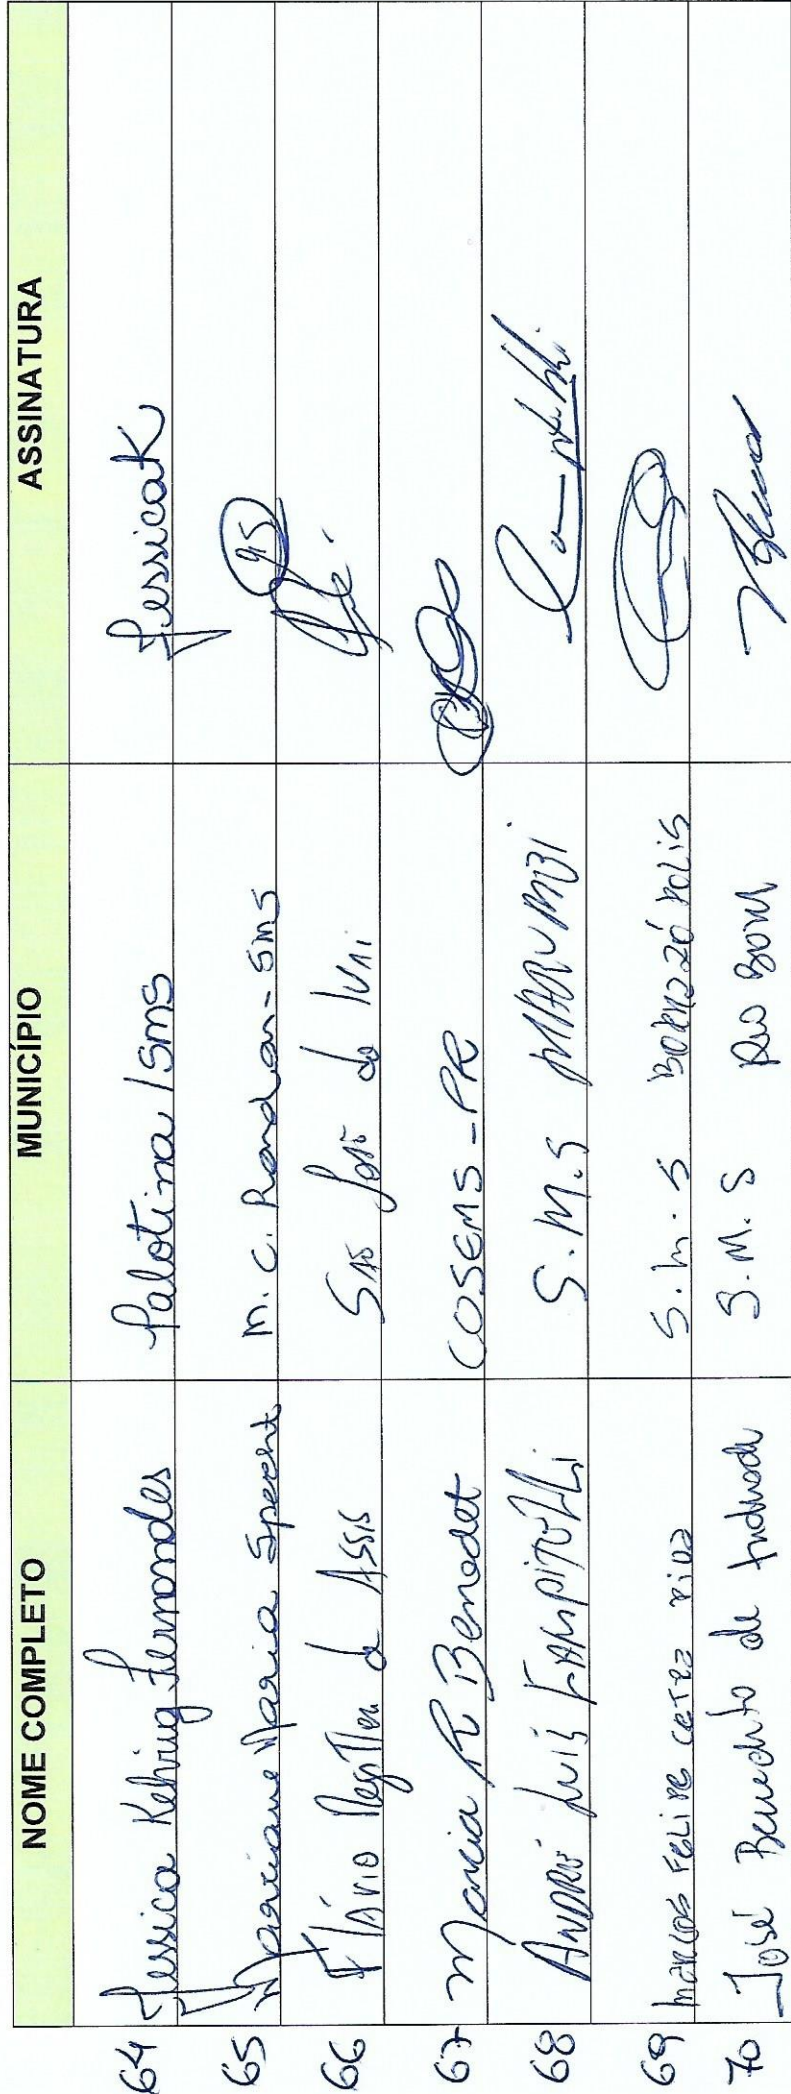 NOME COMPLETO MUNICÍPIO ASSINATURA
64 Jessica Kehrig Fernandes Palotina / SMS JessicaK
65 Mariane Maria Specht M. C. Rondon - SMS
66 Flávio de Assis São José do Ivai
67 Marcia R Benedet COSEMS - PR
68 André Luís Campitelli S.M.S MARUMBI
69 Marcos Felipe S.M.S BORRAZÓPOLIS
70 José Benedito de Andrade S.M.S Rio Bom